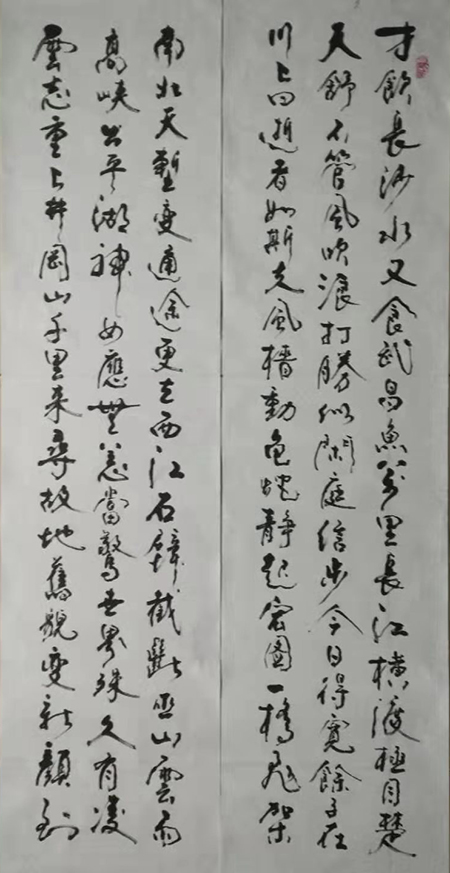 才飲長沙水又食武昌魚萬里長江橫渡極目楚
天舒不管風吹浪打勝似閑庭信步今日得寬餘子在
川上曰逝者如斯夫風檣動龜蛇靜起宏圖一橋飛架
南北天塹變通途更立西江石壁截斷巫山雲雨
高峽出平湖神女應無恙當驚世界殊久有凌
雲志重上井岡山千里來尋故地舊貌變新顏到